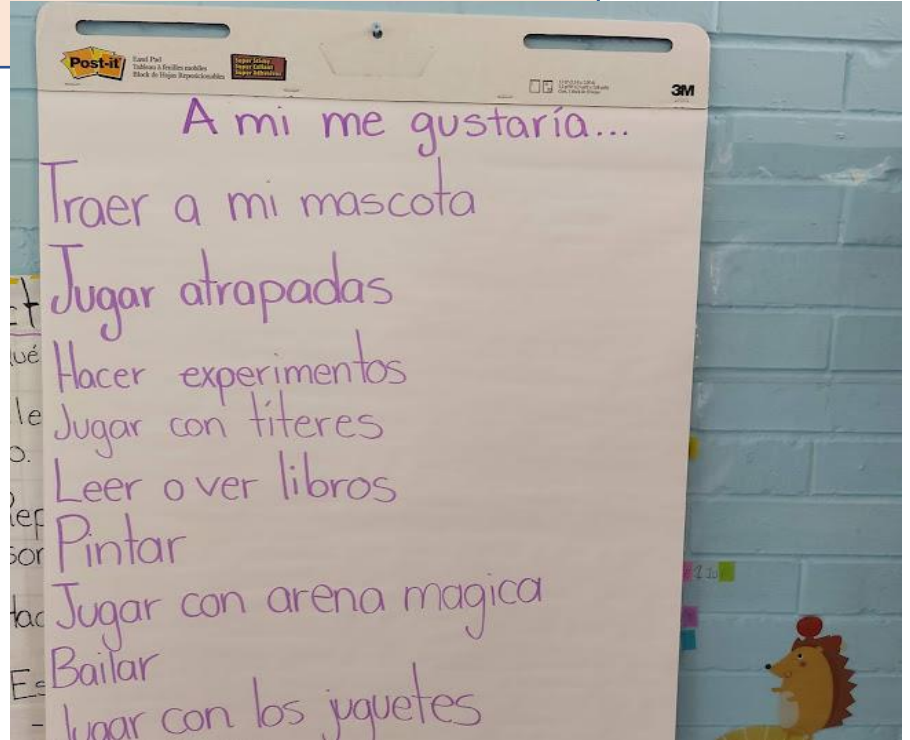 Post-it
Easel Pad
Tableau à feuilles mobiles
Block de Hojas Reposicionables
Super Sticky
Super Collant
Super Adhesivas
3M
A mi me gustaría...
Traer a mi mascota
Jugar atrapadas
Hacer experimentos
Jugar con títeres
Leer o ver libros
Pintar
Jugar con arena magica
Bailar
Jugar con los juguetes